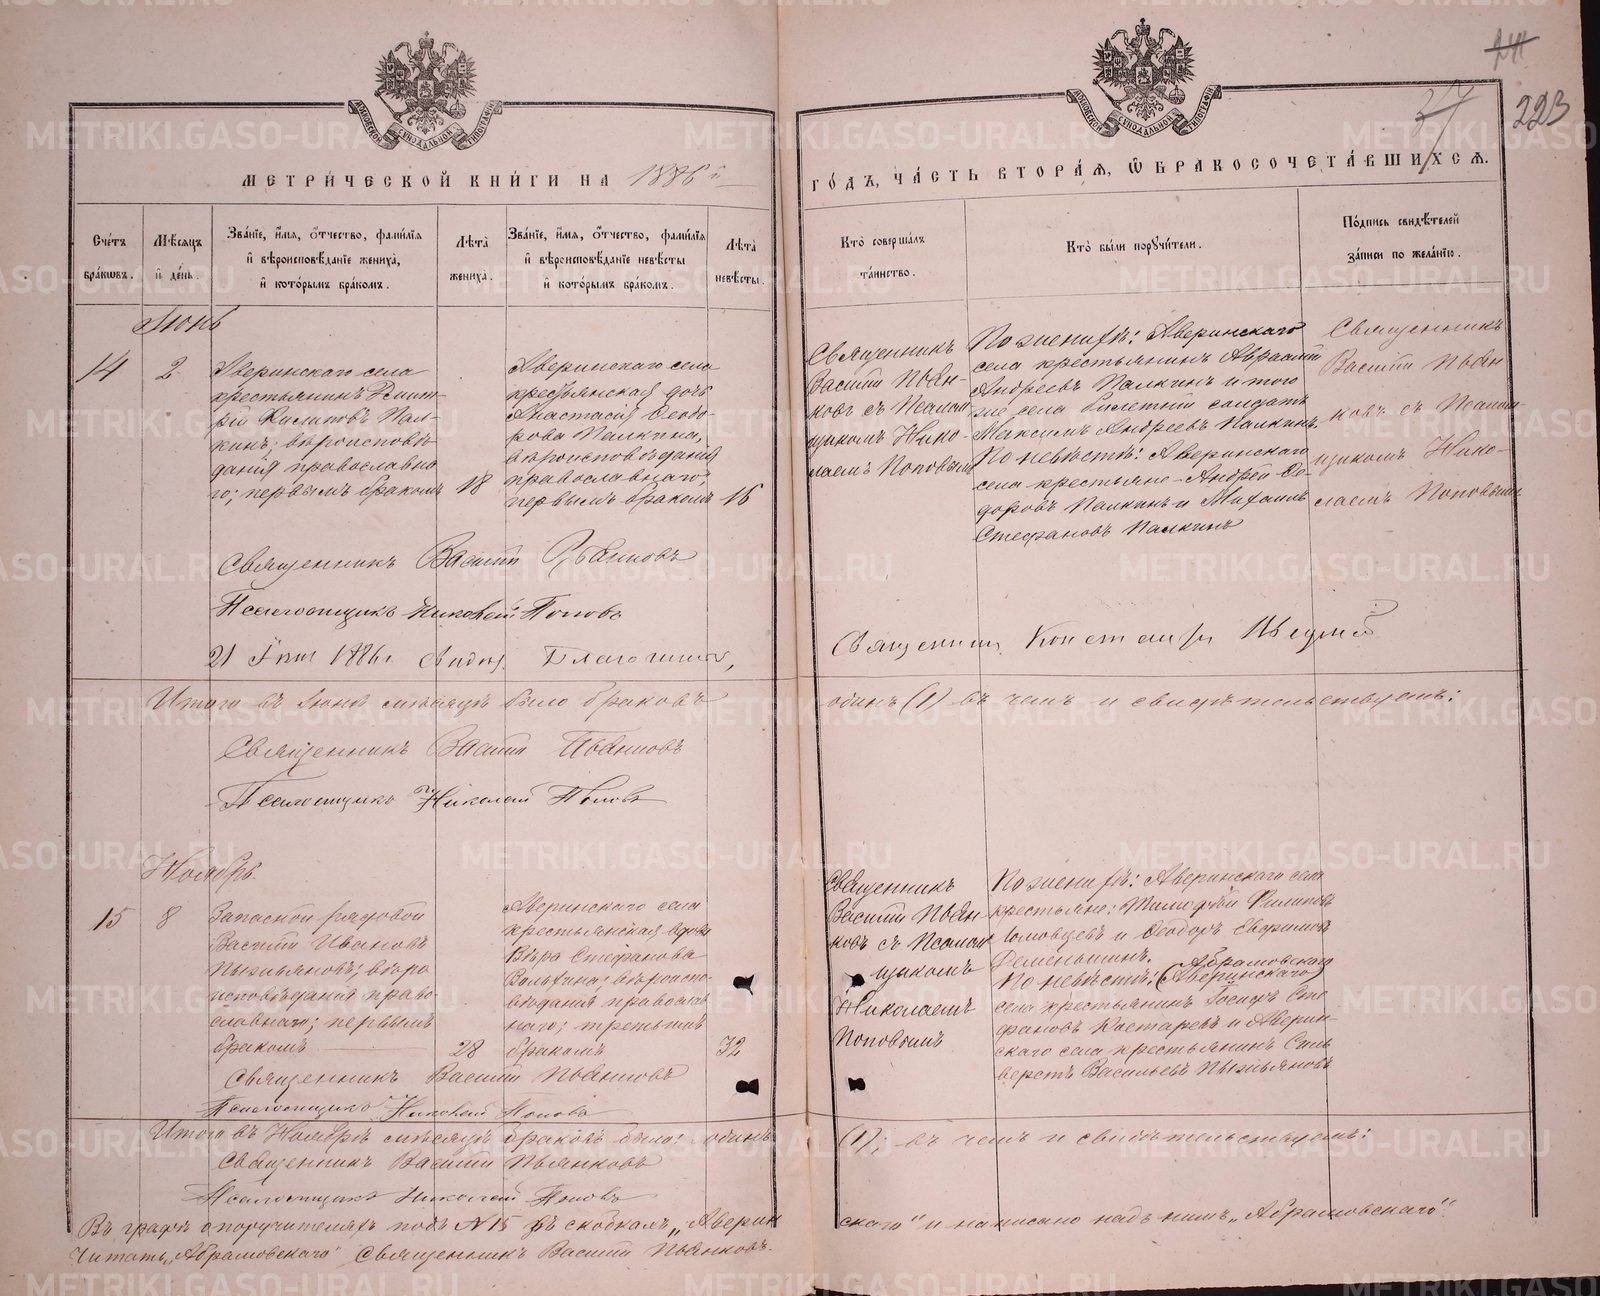 24
37
223
МЕТРИ́ЧЕСКОЙ КНИ́ГИ НА 1886й
ГО́ДЪ, ЧА́СТЬ ВТОРА́Я, Ѡ БРАКОСОЧЕТА́ВШИХСЯ.
Сче́тъ бра́кѡвъ.
Мѣ́сяцъ и де́нь.
Зва́нїе, и́мя, о́тчество, фами́лїя и вѣроисповѣ́данїе жениха̀, и кото́рымъ бра́комъ.
Лѣ́та жениха̀.
Зва́нїе, и́мя, о́тчество, фами́лїя и вѣроисповѣ́данїе невѣ́сты и кото́рымъ бра́комъ.
Лѣ́та невѣ́сты.
Кто̀ соверша́лъ та́инство.
Кто̀ бы́ли поручи́тели.
По́дпись свидѣ́телей за́писи по жела́нїю.
Іюнь
14
2
Аверинскаго села
крестьянинъ Димит-
рій Филиповъ Пал-
кинъ; вѣроисповѣ
данія православна
го; первымъ бракомъ
18
Аверинскаго села
крестьянская дочь
Анастасія Ѳеодо-
рова Палкина,
вѣроисповѣданія
православнаго;
первымъ бракомъ
16
Священникъ
Василій Пьян-
ковъ съ Псалом
щикомъ Нико-
лаемъ Поповымъ
По женихѣ: Аверинскаго
села крестьянинъ Авраамій
Андреевъ Палкинъ и того
же села билетный солдатъ
Максимъ Андреевъ Палкинъ.
По невѣстѣ: Аверинскаго
села крестьяне - Андрей Ѳе-
доровъ Палкинъ и Михаилъ
Стефановъ Палкинъ
Священникъ
Василій Пьян
ковъ съ Псалом
щикомъ Нико-
лаемъ Поповымъ
Священникъ Василій Пьянковъ
Псаломщикъ Николай Поповъ
21 1886 г. Благочинный,
Священникъ
Итого въ Іюнѣ мѣсяцѣ было браковъ
одинъ (1) въ чемъ и свидѣтельствуемъ:
Священникъ Василій Пьянковъ
Псаломщикъ Николай Поповъ
Ноябрь
15
8
Запасной рядовой
Василій Ивановъ
Пызьяновъ; вѣро
исповѣданія право-
славнаго; первымъ
бракомъ
28
Аверинскаго села
крестьянская вдова
Вѣра Стефанова
вѣроиспо-
вѣданія православ
наго; третьимъ
бракомъ
32
Священникъ
Василій Пьян-
ковъ съ Псалом
щикомъ
Николаемъ
Поповымъ
По женихѣ: Аверинскаго села
крестьяне: Тимофей Филипов
и Ѳеодоръ Евфимовъ
Деменьшинъ. Абрамовскаго
По невѣстѣ: (Аверинскаго)
села крестьянинъ Іосифъ Сте
фановъ Костаревъ и Аверин-
скаго села крестьянинъ Силь
верстъ Васильевъ Пызьяновъ
Священникъ Василій Пьянковъ
Псаломщикъ Николай Поповъ
Итого въ Ноябрѣ мѣсяцѣ браковъ было: одинъ
(1); въ чемъ и свидѣтельствуемъ:
Священникъ Василій Пьянковъ
Псаломщикъ Николай Поповъ
Въ графѣ о поручителяхъ подъ N15 въ скобкахъ „Аверин
скаго" и написано надъ нимъ „Абрамовскаго"
Читать „Абрамовскаго" Священникъ Василій Пьянковъ.
METRIKI.GASO-URAL.RU